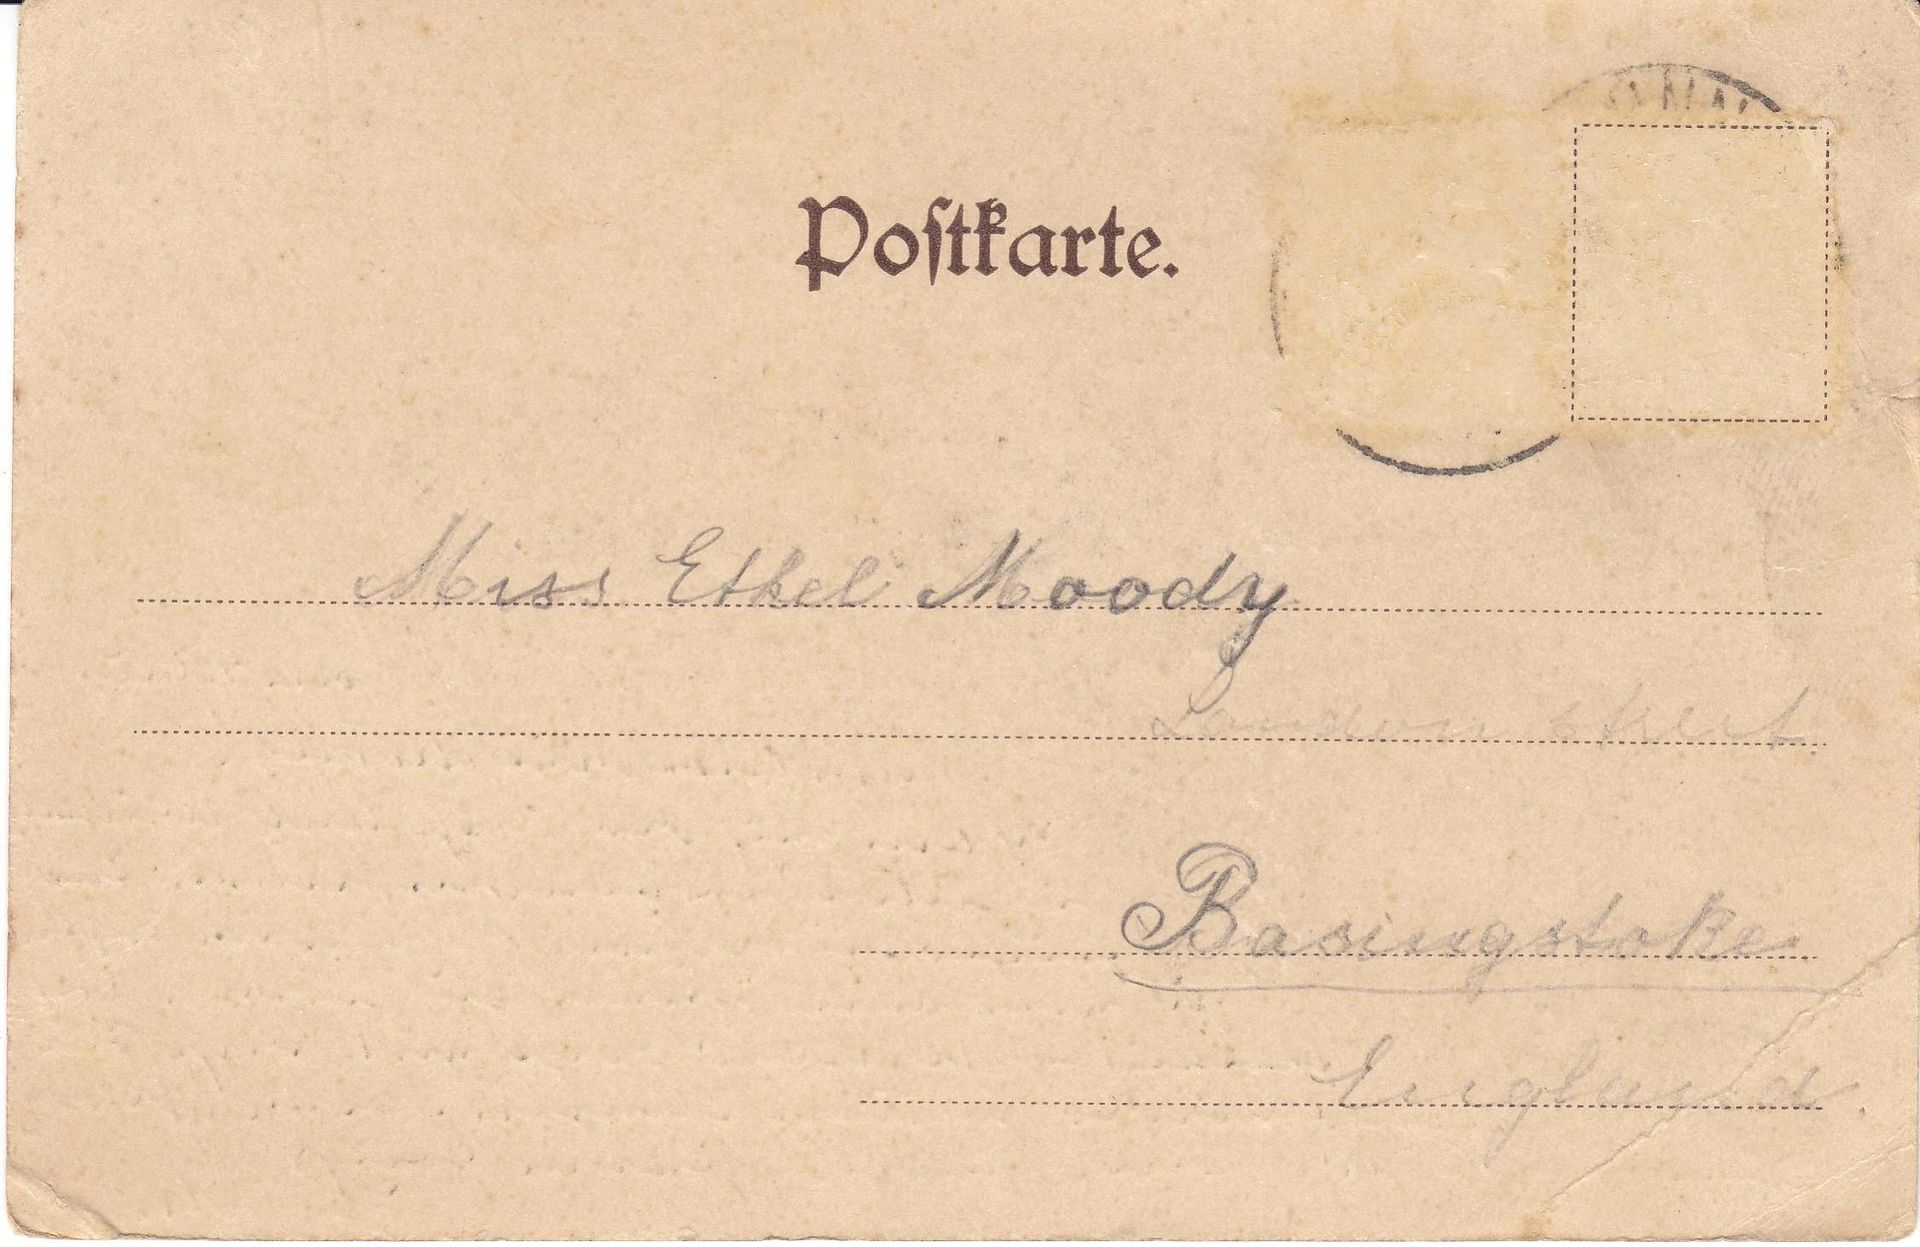 Poſtkarte.
Miss Ethel Moody
London Street.
Basingstoke
England.